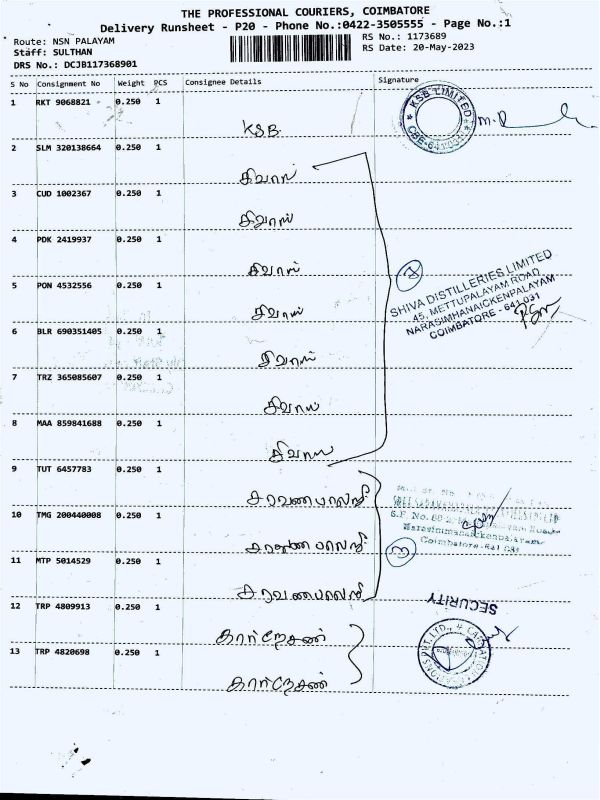 THE PROFESSIONAL COURIERS, COIMBATORE
Delivery Runsheet - P20 - Phone No.:0422-3505555 - Page No.:1
Route: NSN PALAYAM
RS No.: 1173689
Staff: SULTHAN
RS Date: 20-May-2023
DRS No.: DCJB117368901
S No Consignment No Weight PCS Consignee Details Signature
1 RKT 9068821 0.250 1
KSB
KSB LIMITED
2 SLM 320138664 0.250 1
சிவாஸ்
3 CUD 1002367 0.250 1
சிவாஸ்
4 PDK 2419937 0.250 1
சிவாஸ்
7
SHIVA DISTILLERIES LIMITED
45, METTUPALAYAM ROAD
NARASIMHANAICKENPALAYAM
COIMBATORE - 641 031
5 PON 4532556 0.250 1
சிவாஸ்
6 BLR 690351405 0.250 1
சிவாஸ்
7 TRZ 365085607 0.250 1
சிவாஸ்
8 MAA 859841688 0.250 1
சிவாஸ்
9 TUT 6457783 0.250 1
சரவணபாலாஜி
10 TMG 200440008 0.250 1
சரவணபாலாஜி
Narasimmanaickenpalayam
Coimbatore-641 031
3
11 MTP 5014529 0.250 1
சரவணபாலாஜி
12 TRP 4809913 0.250 1
கார்னேசன்
SECURITY
13 TRP 4820698 0.250 1
கார்னேசன்